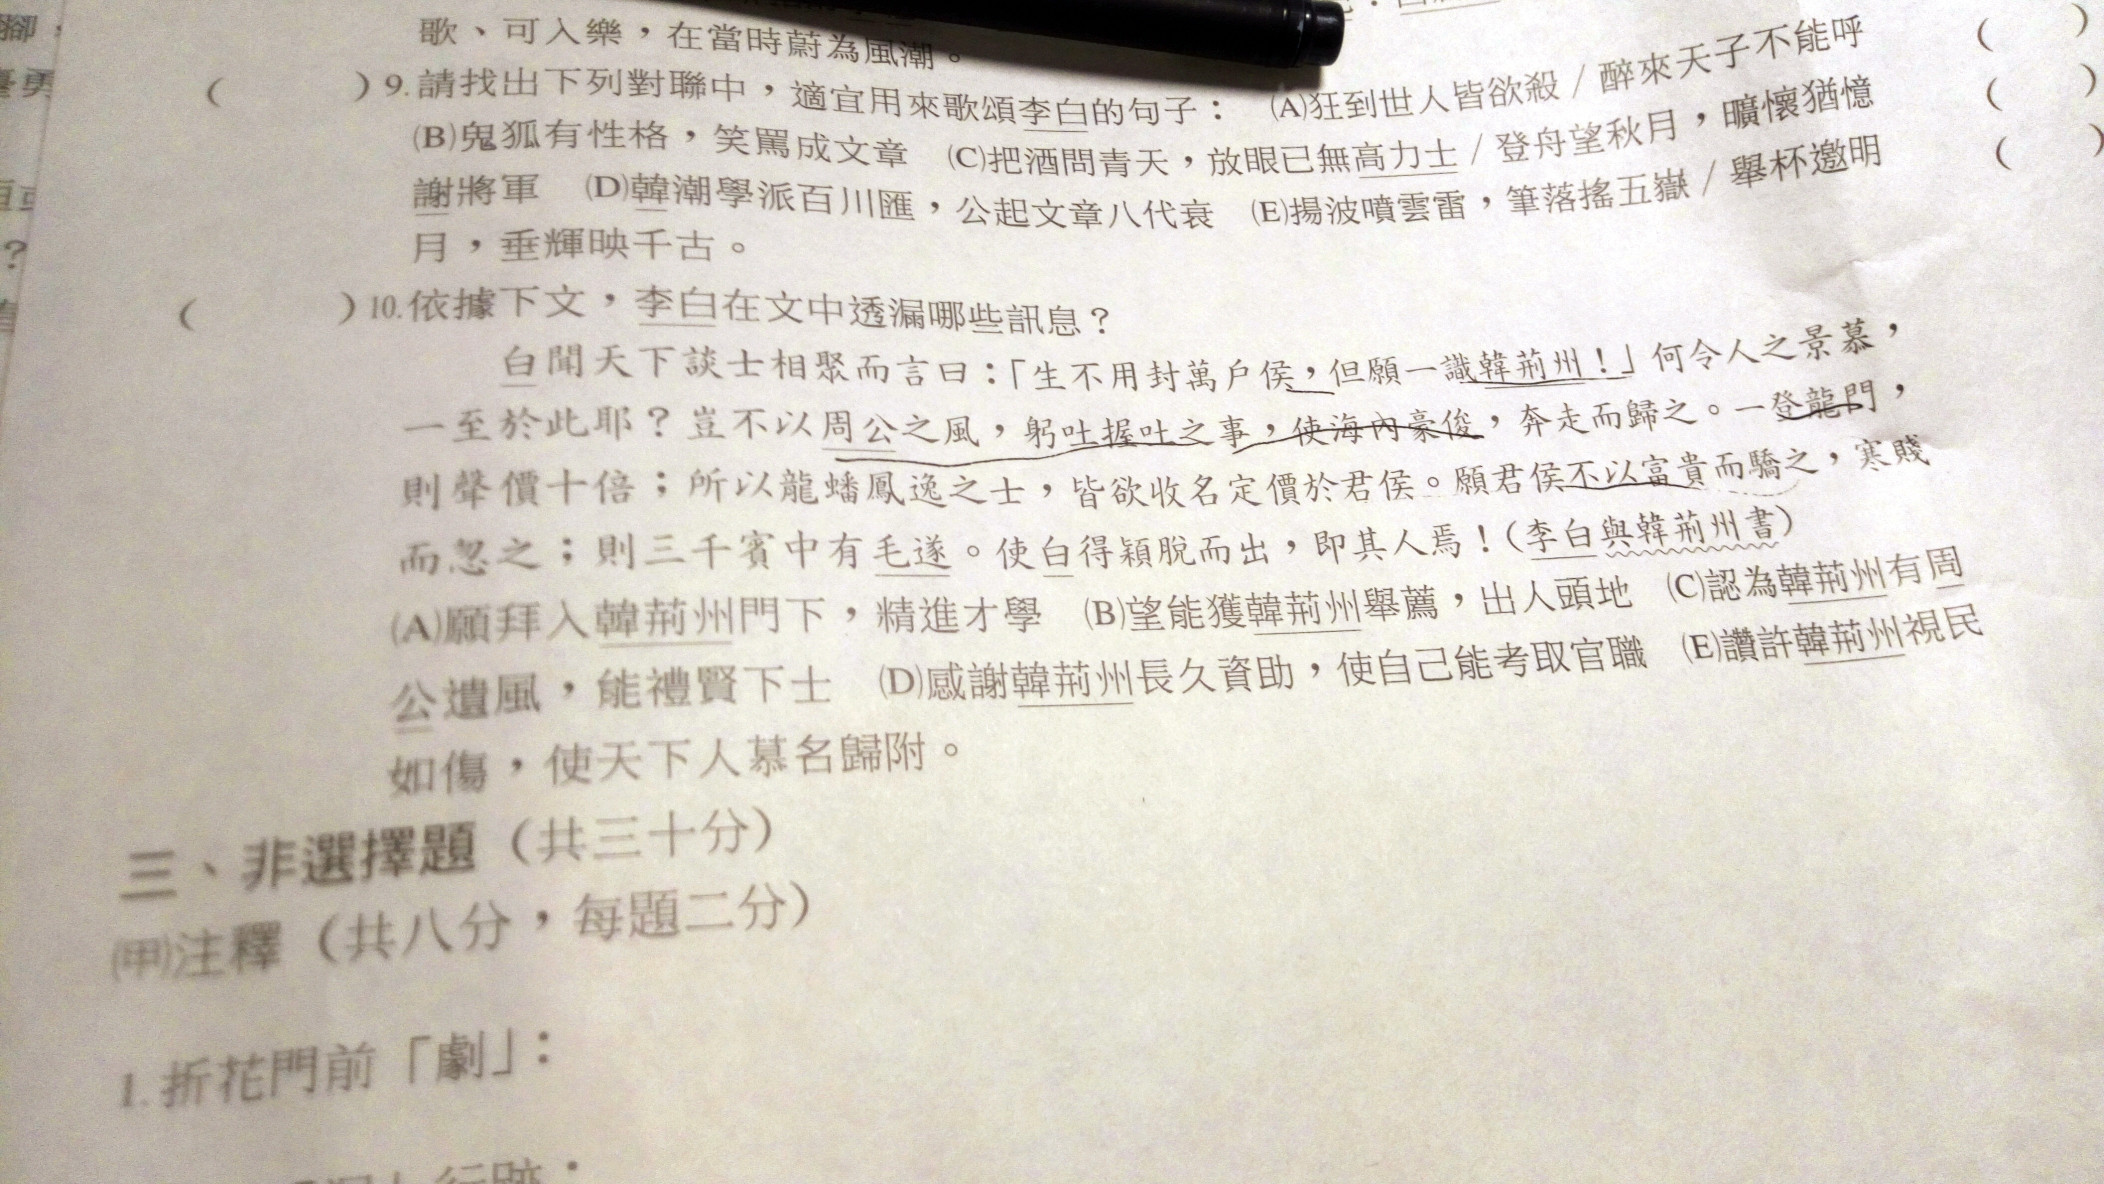 腳,
歌、可入樂,在當時蔚為風潮。
( )9.請找出下列對聯中,適宜用來歌頌李白的句子: (A)狂到世人皆欲殺/醉來天子不能呼 ( )
(B)鬼狐有性格,笑罵成文章 (C)把酒問青天,放眼已無高力士/登舟望秋月,曠懷猶憶 ( )
謝將軍 (D)韓潮學派百川匯,公起文章八代衰 (E)揚波噴雲雷,筆落搖五嶽/舉杯邀明 ( )
月,垂輝映千古。
?
( )10.依據下文,李白在文中透漏哪些訊息?
白聞天下談士相聚而言曰:「生不用封萬戶侯,但願一識韓荊州!」何令人之景慕,
一至於此耶?豈不以周公之風,躬吐握吐之事,使海內豪俊,奔走而歸之。一登龍門,
則聲價十倍;所以龍蟠鳳逸之士,皆欲收名定價於君侯。願君侯不以富貴而驕之,寒賤
而忽之;則三千賓中有毛遂。使白得穎脫而出,即其人焉!(李白與韓荊州書)
(A)願拜入韓荊州門下,精進才學 (B)望能獲韓荊州舉薦,出人頭地 (C)認為韓荊州有周
公遺風,能禮賢下士 (D)感謝韓荊州長久資助,使自己能考取官職 (E)讚許韓荊州視民
如傷,使天下人慕名歸附。
三、非選擇題(共三十分)
(甲)注釋(共八分,每題二分)
1.折花門前「劇」: